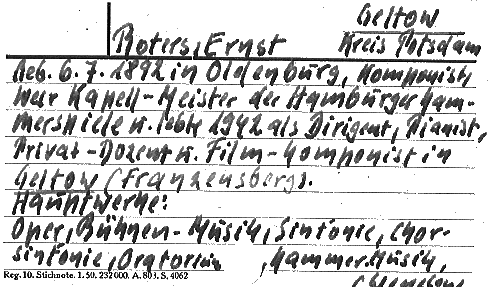 Geltow
Roters, Ernst Kreis Potsdam
Geb. 6. 7. 1892 in Oldenburg, Komponist,
war Kapell-Meister der Hamburger Kam-
merspiele u. lebte 1942 als Dirigent, Pianist,
Privat-Dozent u. Film-Komponist in
Geltow (Franzensberg).
Hauptwerke:
Oper, Bühnen-Musik, Sinfonie, Chor-
sinfonie, Oratorium, Kammermusik,
Reg. 10. Stichnote. 1. 50. 232000. A. 803. S. 4062